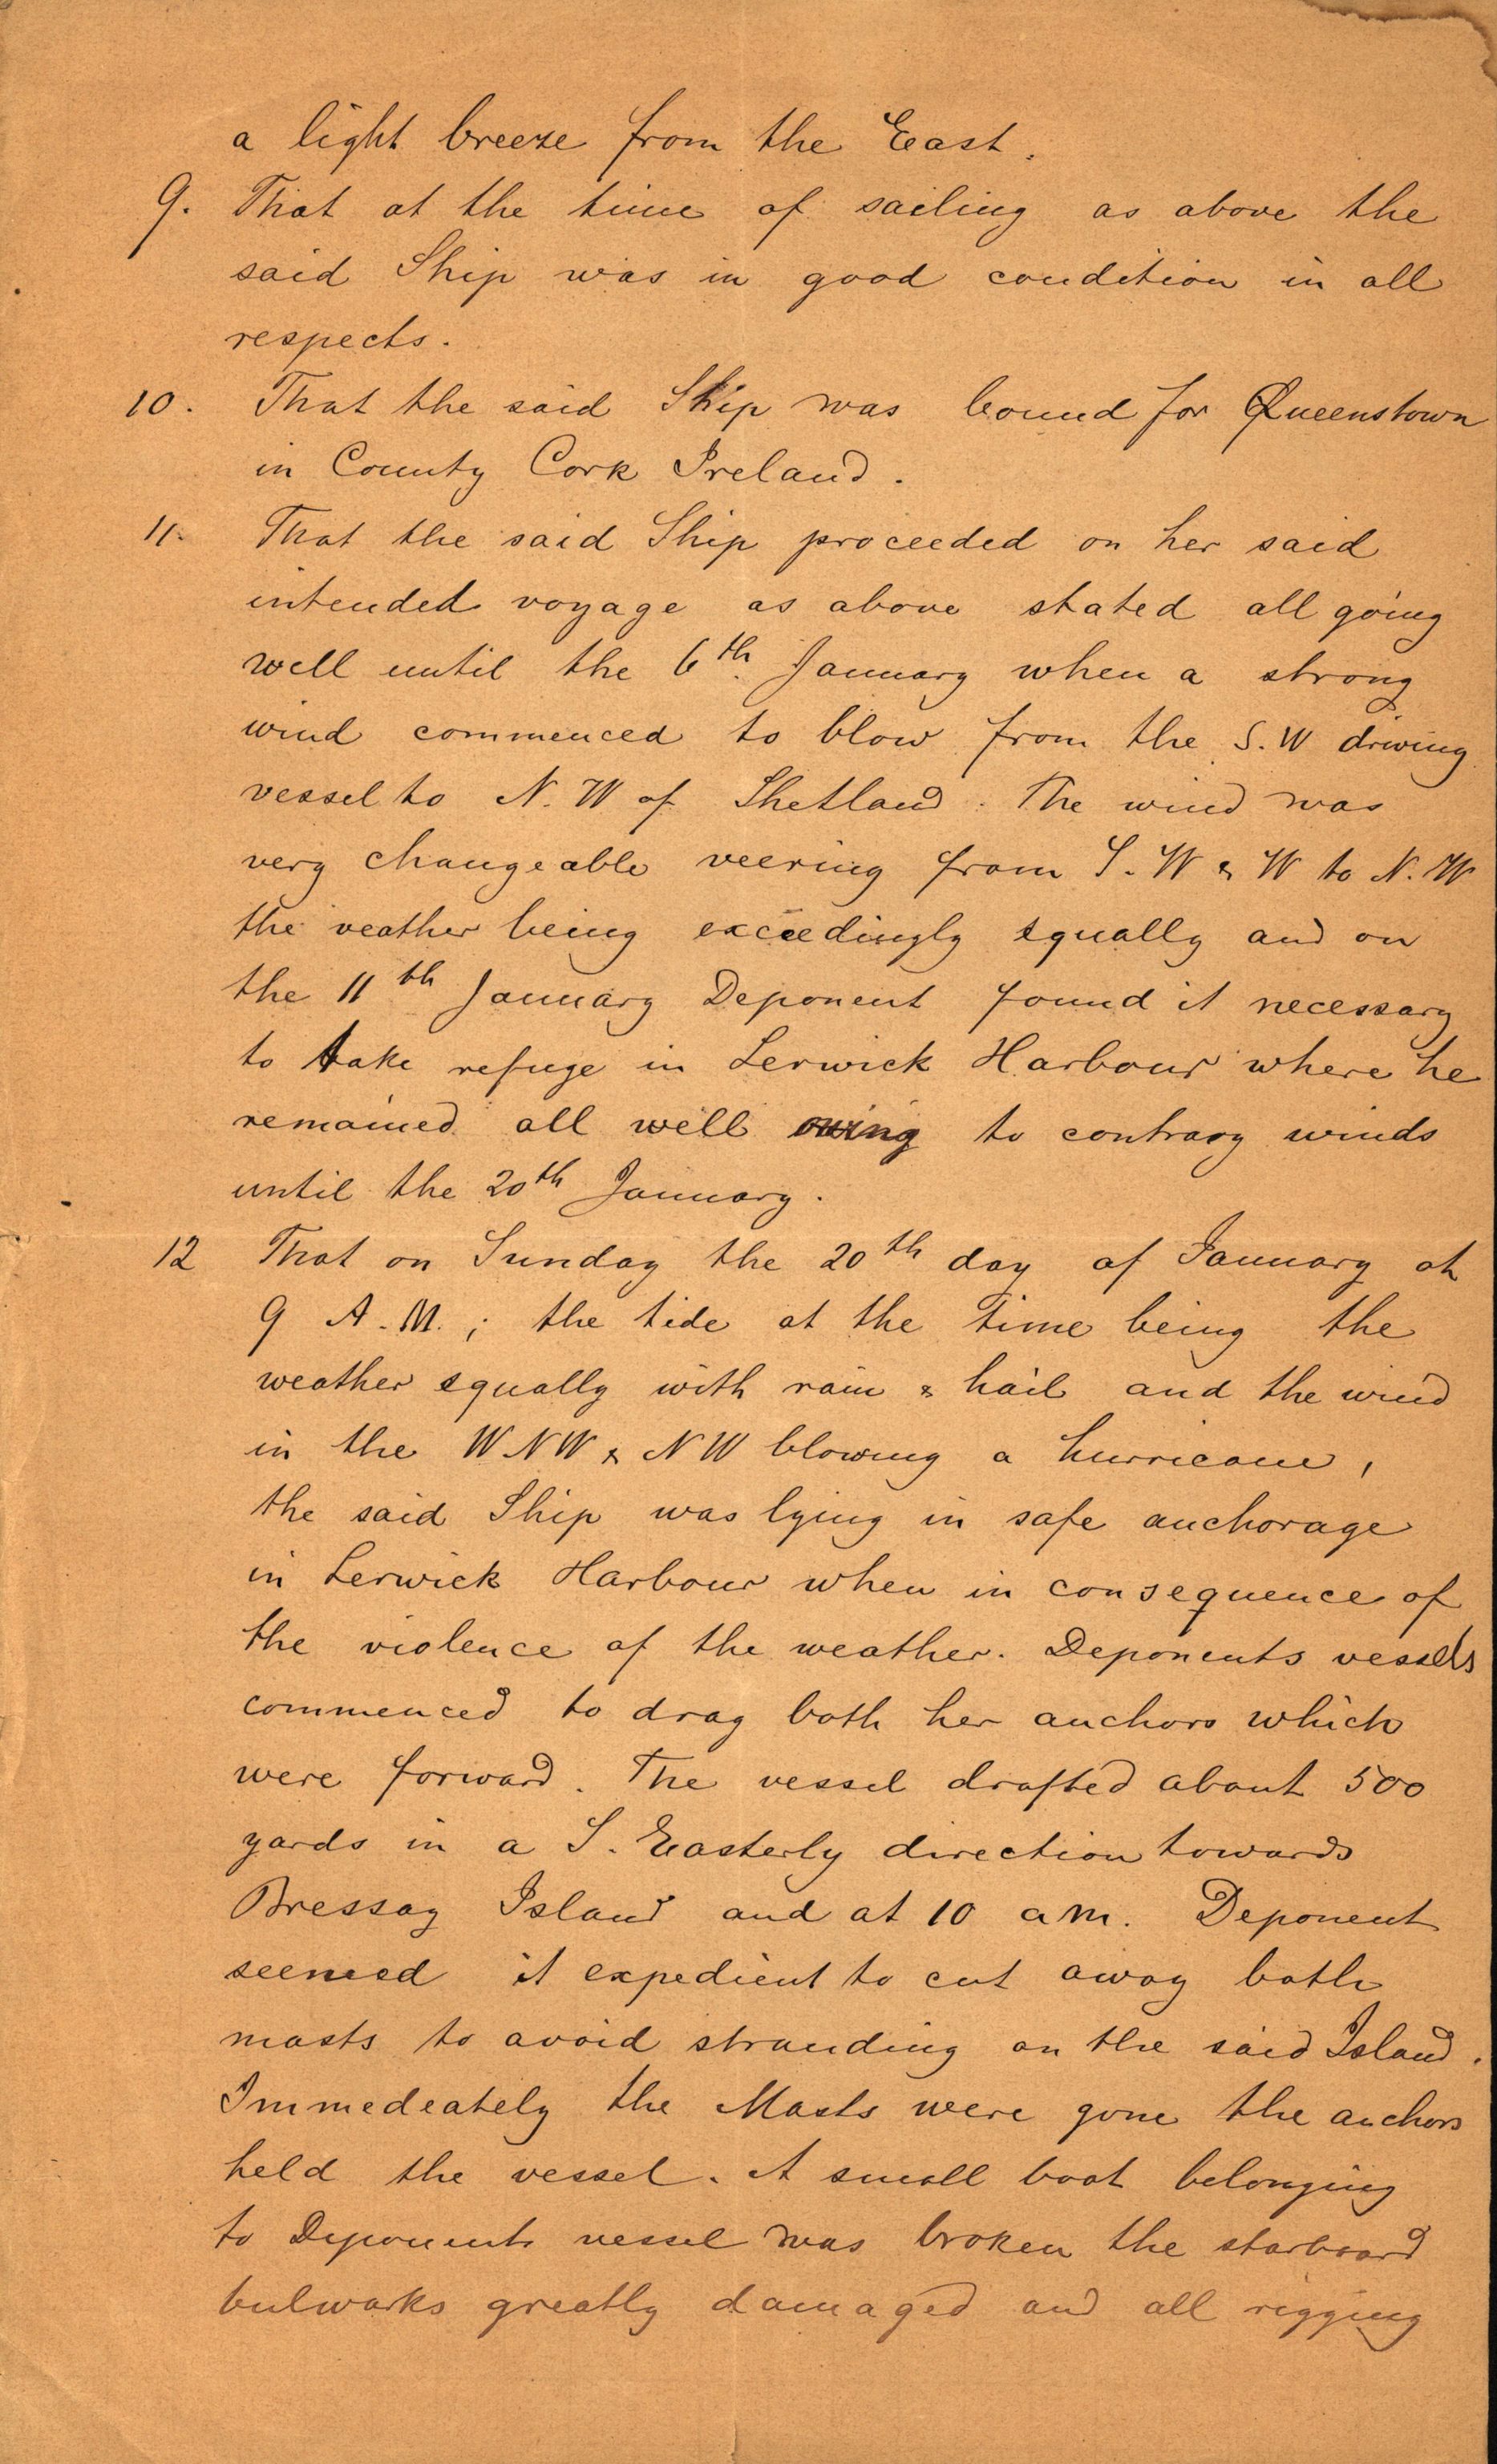 a light breeze from the East.
9. That at the time of sailing as above the
said Ship was in good condition in all
respects.
10. That the said Ship was bound for Queenstown
in County Cork Ireland.
11. That the said Ship proceeded on her said
intended voyage as above stated all going
well until the 6th. January when a strong
wind commenced to blow from the S.W driving
vessel to N.W of Shetland. The wind was
very changeable veering from S.W & W to N.W
the veather being exceedingly squally and on
the 11th January Deponent found it necessary
to take refuge in Lerwick Harbour where he
remained all well owing to contrary winds
until the 20th January.
12 That on Sunday the 20th day of January at
9 A.M.; the tide at the time being the
weather squally with rain & hail and the wind
in the WNW & NW blowing a hurricane,
the said Ship was lying in safe anchorage
in Lerwick Harbour when in consequence of
the violence of the weather. Deponents vessels
commenced to drag both her anchors which
were forward. The vessel drafted about 500
yards in a S. Easterly direction towards
Bressay Island and at 10 am. Deponent
seemed it expedient to cut away both
masts to avoid stranding on the said Island.
Immedeately the Masts were gone the anchors
held the vessel. A small boat belonging
to Deponents vessel was broken the starboard
bulwarks greatly damaged and all rigging